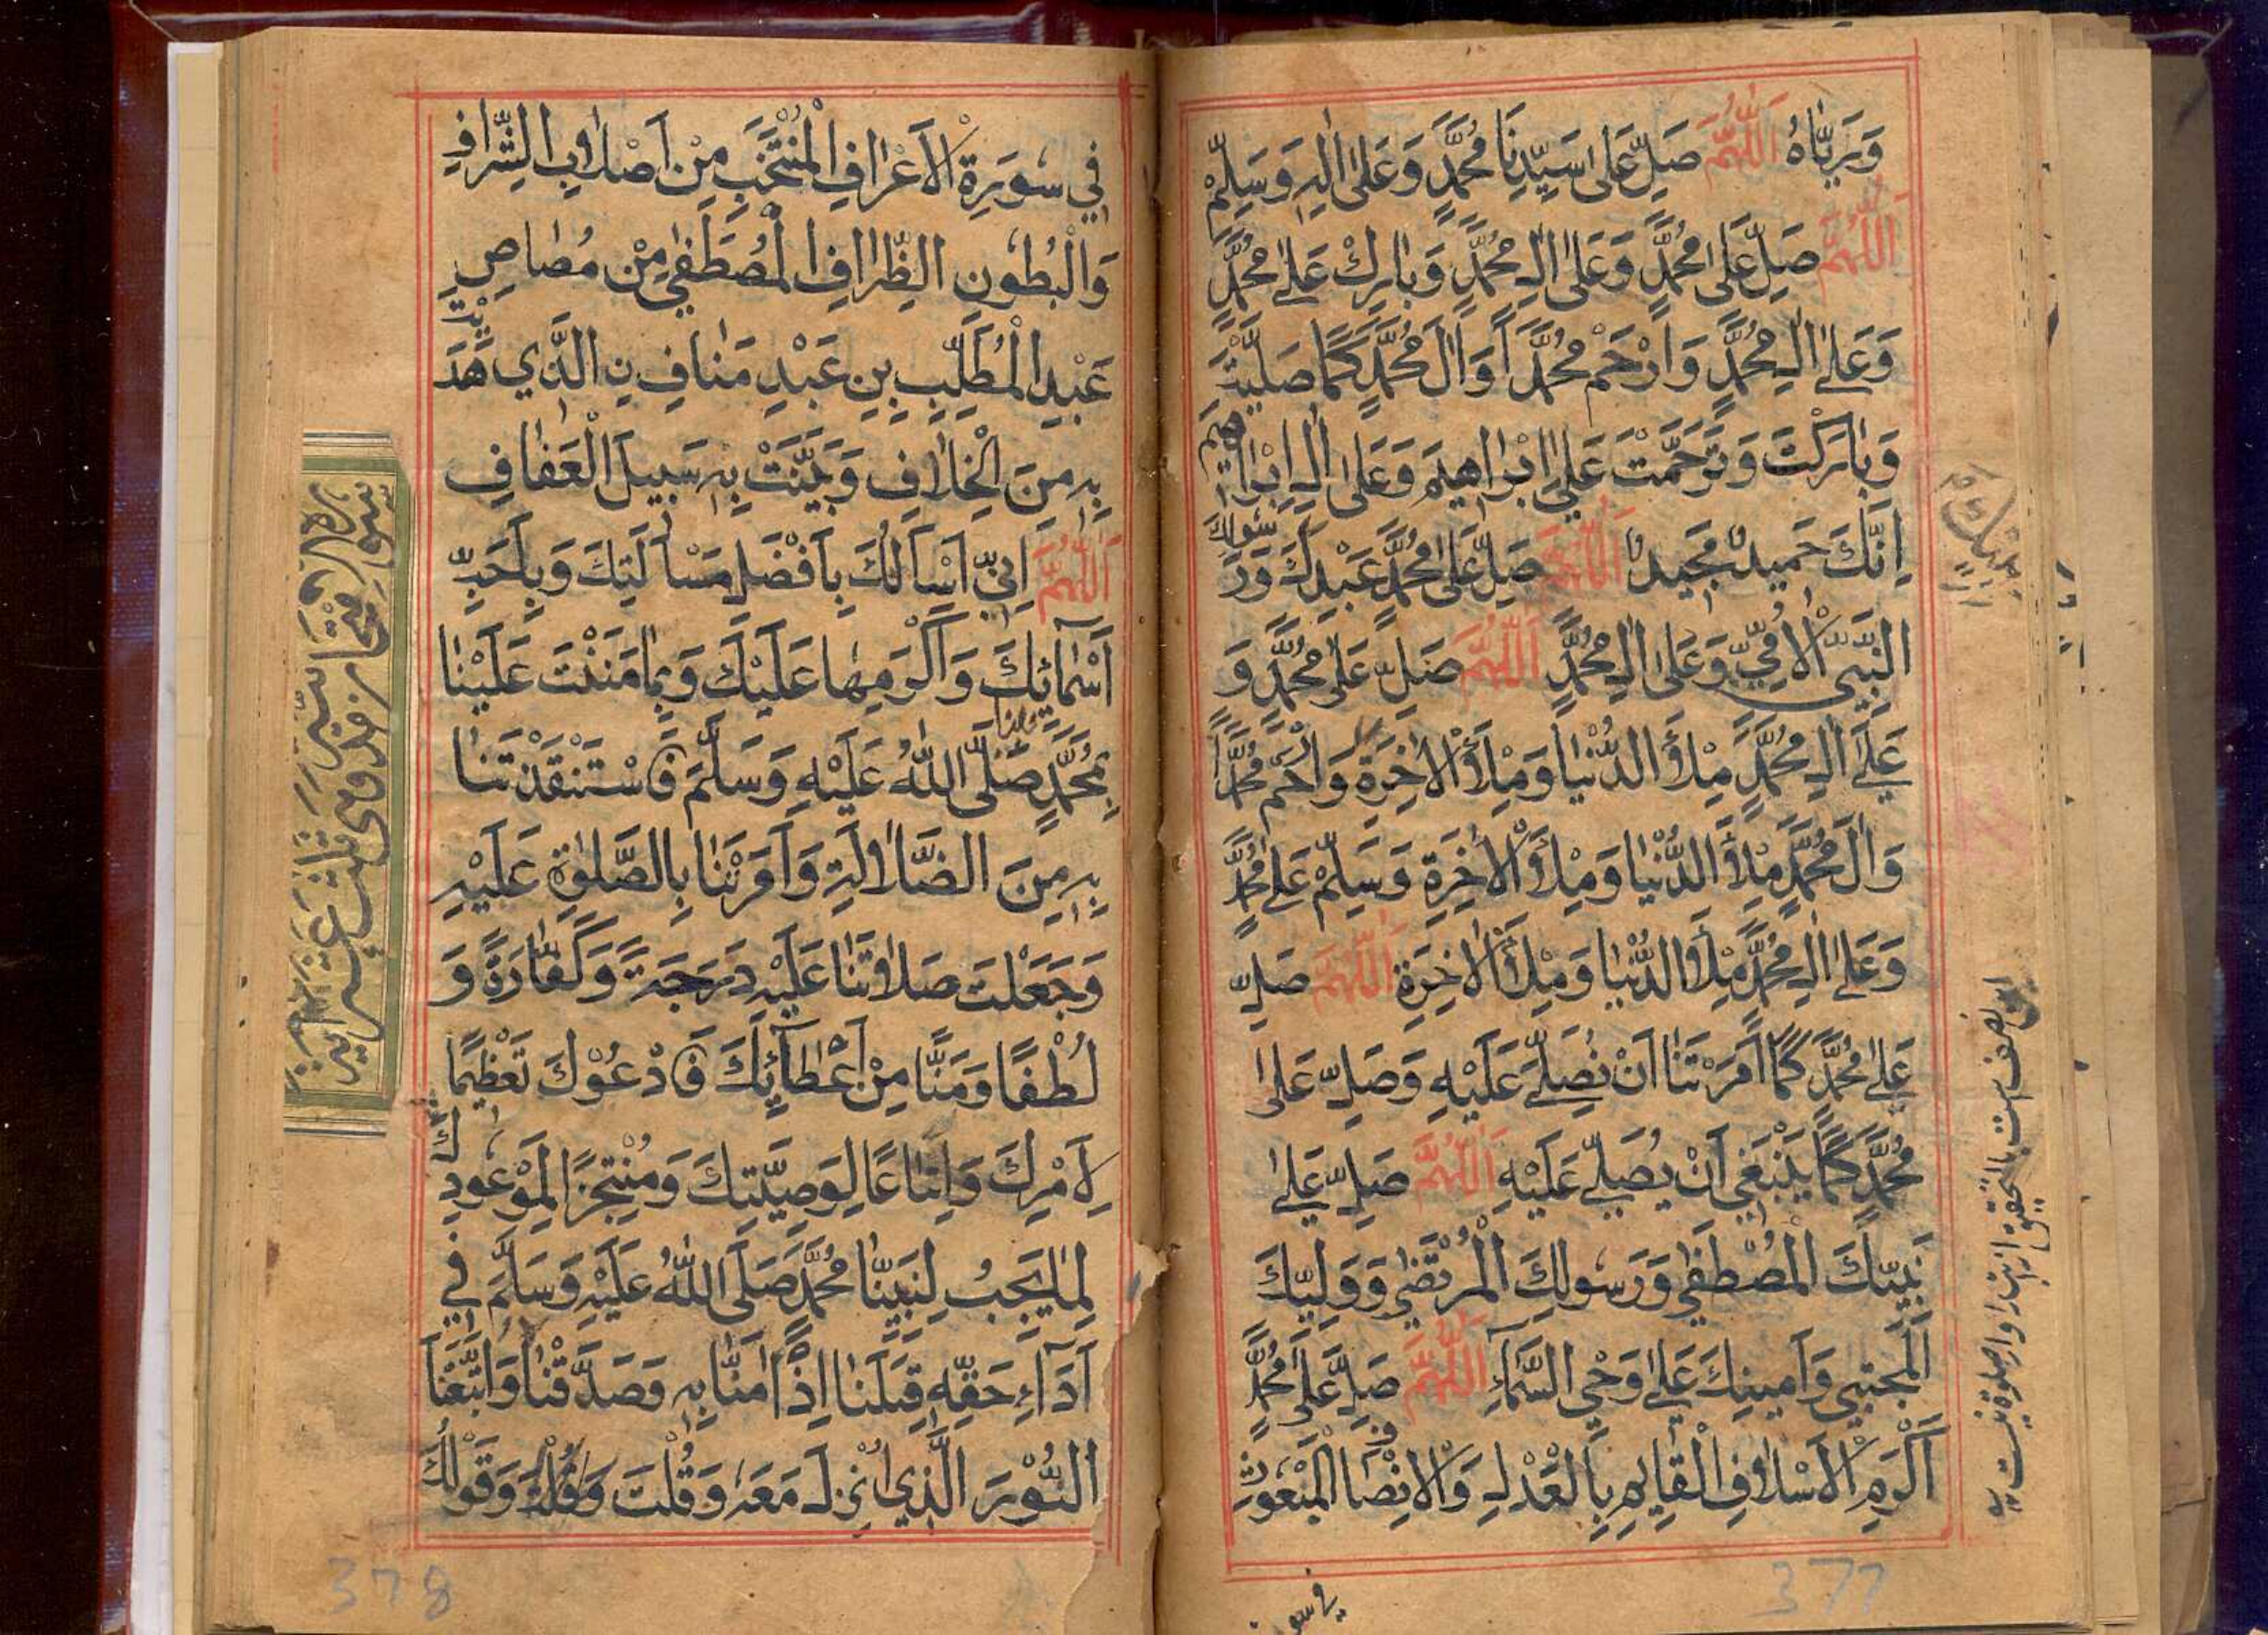 وَرَيَّاهُ اَللّٰهُمَّ صَلِّ عَلٰى سَيِّدِنَا مُحَمَّدٍ وَعَلٰى اٰلِهٖ وَسَلِّمْ
اَللّٰهُمَّ صَلِّ عَلٰى مُحَمَّدٍ وَعَلٰى اٰلِ مُحَمَّدٍ وَبَارِكْ عَلٰى مُحَمَّدٍ
وَعَلٰى اٰلِ مُحَمَّدٍ وَارْحَمْ مُحَمَّدًا وَاٰلَ مُحَمَّدٍ كَمَا صَلَّيْتَ
وَبَارَكْتَ وَتَرَحَّمْتَ عَلٰى اِبْرَاهِيمَ وَعَلٰى اٰلِ اِبْرَاهِيمَ
اِنَّكَ حَمِيدٌ مَجِيدٌ اَللّٰهُمَّ صَلِّ عَلٰى مُحَمَّدٍ عَبْدِكَ وَرَسُولِكَ
النَّبِيِّ الْاُمِّيِّ وَعَلٰى اٰلِ مُحَمَّدٍ اَللّٰهُمَّ صَلِّ عَلٰى مُحَمَّدٍ وَ
عَلٰى اٰلِ مُحَمَّدٍ مِلْأَ الدُّنْيَا وَمِلْأَ الْاٰخِرَةِ وَارْحَمْ مُحَمَّدًا
وَاٰلَ مُحَمَّدٍ مِلْأَ الدُّنْيَا وَمِلْأَ الْاٰخِرَةِ وَسَلِّمْ عَلٰى مُحَمَّدٍ
وَعَلٰى اٰلِ مُحَمَّدٍ مِلْأَ الدُّنْيَا وَمِلْأَ الْاٰخِرَةِ اَللّٰهُمَّ صَلِّ
عَلٰى مُحَمَّدٍ كَمَا اَمَرْتَنَا اَنْ نُصَلِّيَ عَلَيْهِ وَصَلِّ عَلٰى
مُحَمَّدٍ كَمَا يَنْبَغِي اَنْ يُصَلّٰى عَلَيْهِ اَللّٰهُمَّ صَلِّ عَلٰى
نَبِيِّكَ الْمُصْطَفٰى وَرَسُولِكَ الْمُرْتَضٰى وَوَلِيِّكَ
الْمُجْتَبٰى وَاَمِينِكَ عَلٰى وَحْيِ السَّمَآءِ اَللّٰهُمَّ صَلِّ عَلٰى مُحَمَّدٍ
اَكْرَمِ الْاَسْلَافِ الْقَايِمِ بِالْعَدْلِ وَالْاِنْصَافِ الْمَنْعُوتِ
في سو
فِي سُورَةِ الْاَعْرَافِ الْمُنْتَخَبِ مِنْ اَصْلَابِ الشِّرَافِ
وَالْبُطُونِ الظِّرَافِ الْمُصَطَّفٰى مِنْ مُصَاصِ
عَبْدِ الْمُطَّلِبِ بْنِ عَبْدِ مَنَافِ نِ الَّذِي هَدَيْتَ
بِهٖ مِنَ الْخِلَافِ وَبَيَّنْتَ بِهٖ سَبِيلَ الْعَفَافِ
اَللّٰهُمَّ اِنِّي اَسْاَلُكَ بِاَفْضَلِ مَسْاَلَتِكَ وَبِاَحَبِّ
اَسْمَائِكَ وَاَكْرَمِهَا عَلَيْكَ وَبِمَا مَنَنْتَ عَلَيْنَا
بِمُحَمَّدٍ نَبِيِّنَا صَلَّى اللّٰهُ عَلَيْهِ وَسَلَّمَ فَاسْتَنْقَذْتَنَا
بِهٖ مِنَ الضَّلَالَةِ وَاَمَرْتَنَا بِالصَّلٰوةِ عَلَيْهِ
وَجَعَلْتَ صَلَاتَنَا عَلَيْهِ دَرَجَةً وَكَفَّارَةً وَ
لُطْفًا وَمَنًّا مِنْ اَعْطَآئِكَ فَادْعُوْكَ تَعْظِيمًا
لِاَمْرِكَ وَاتِّبَاعًا لِوَصِيَّتِكَ وَمُنْتَجِزًا لِمَوْعُودِكَ
لِمَا يَجِبُ لِنَبِيِّنَا مُحَمَّدٍ صَلَّى اللّٰهُ عَلَيْهِ وَسَلَّمَ فِي
اَدَآءِ حَقِّهٖ قِبَلَنَا اِذْ اٰمَنَّا بِهٖ وَصَدَّقْنَا وَاتَّبَعْنَا
النُّوْرَ الَّذِي اُنْزِلَ مَعَهٗ وَقُلْتَ وَقَوْلُكَ
377
378